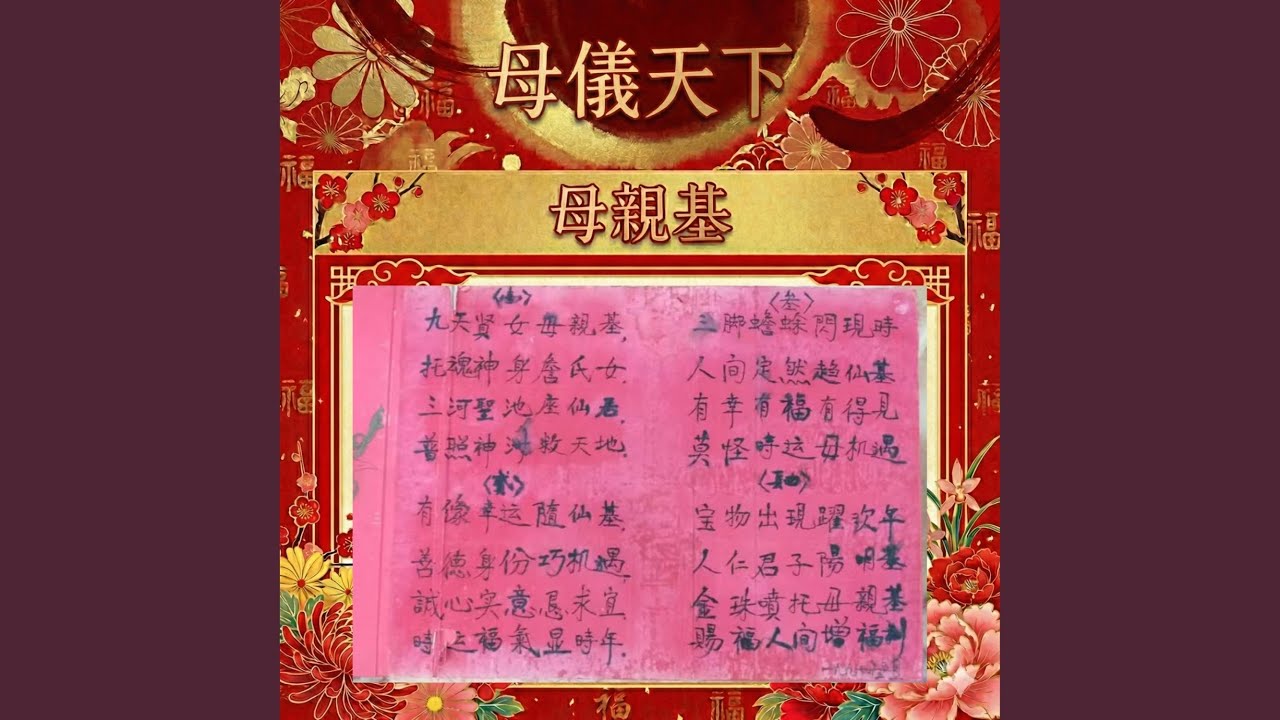 母儀天下
母親基
九天贤女母親基,
托魂神身詹氏女.
三河聖池座仙居,
普照神 救天地.
有像幸运隨仙基,
善德身份巧机遇,
誠心实意恳求宜
時运福氣显時年.
〈叁〉
三脚蟾蜍閃現時
人间定然趋仙基
有幸有福有得見
莫怪時运毋机遇
宝物出現躍欢午
人仁君子陽明基
金珠噴托母親基
賜福人间增福利